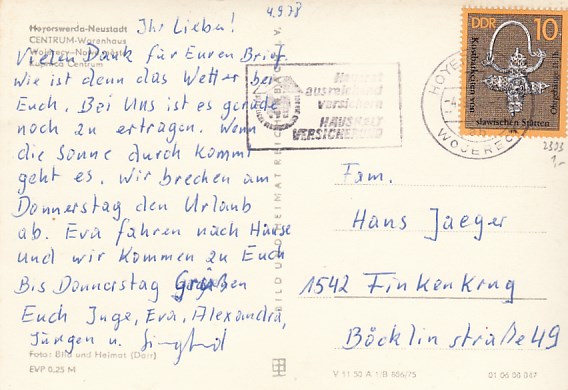 4.9.78
Ihr Lieben!
Hoyerswerda-Neustadt
CENTRUM-Warenhaus
Wojerecy-Nowe město
Kupnica Centrum
Vielen Dank für Euren Brief.
Wie ist denn das Wetter bei
Euch. Bei Uns ist es gerade
noch zu ertragen. Wenn
die Sonne durch kommt
geht es. Wir brechen am
Donnerstag den Urlaub
ab. Eva fahren nach Hause
und wir kommen zu Euch
Bis Donnerstag Grüßen
Euch Inge, Eva, Alexandra,
Jürgen u. Siegfried
Foto: Bild und Heimat (Dorr)
EVP 0,25 M
BILD UND HEIMAT REICHENBACH I. V.
ausreichend
versichern
HAUSHALT
VERSICHERUNG
HOYE
WOJEREC
DDR 10
Kostbarkeiten von
slawischen Stätten
Ohrgehänge 11. Jh.
2303
1,-
Fam.
Hans Jaeger
1542 Finkenkrug
Böcklinstraße 49
V 11 50 A 1/B 886/75
01 06 08 047